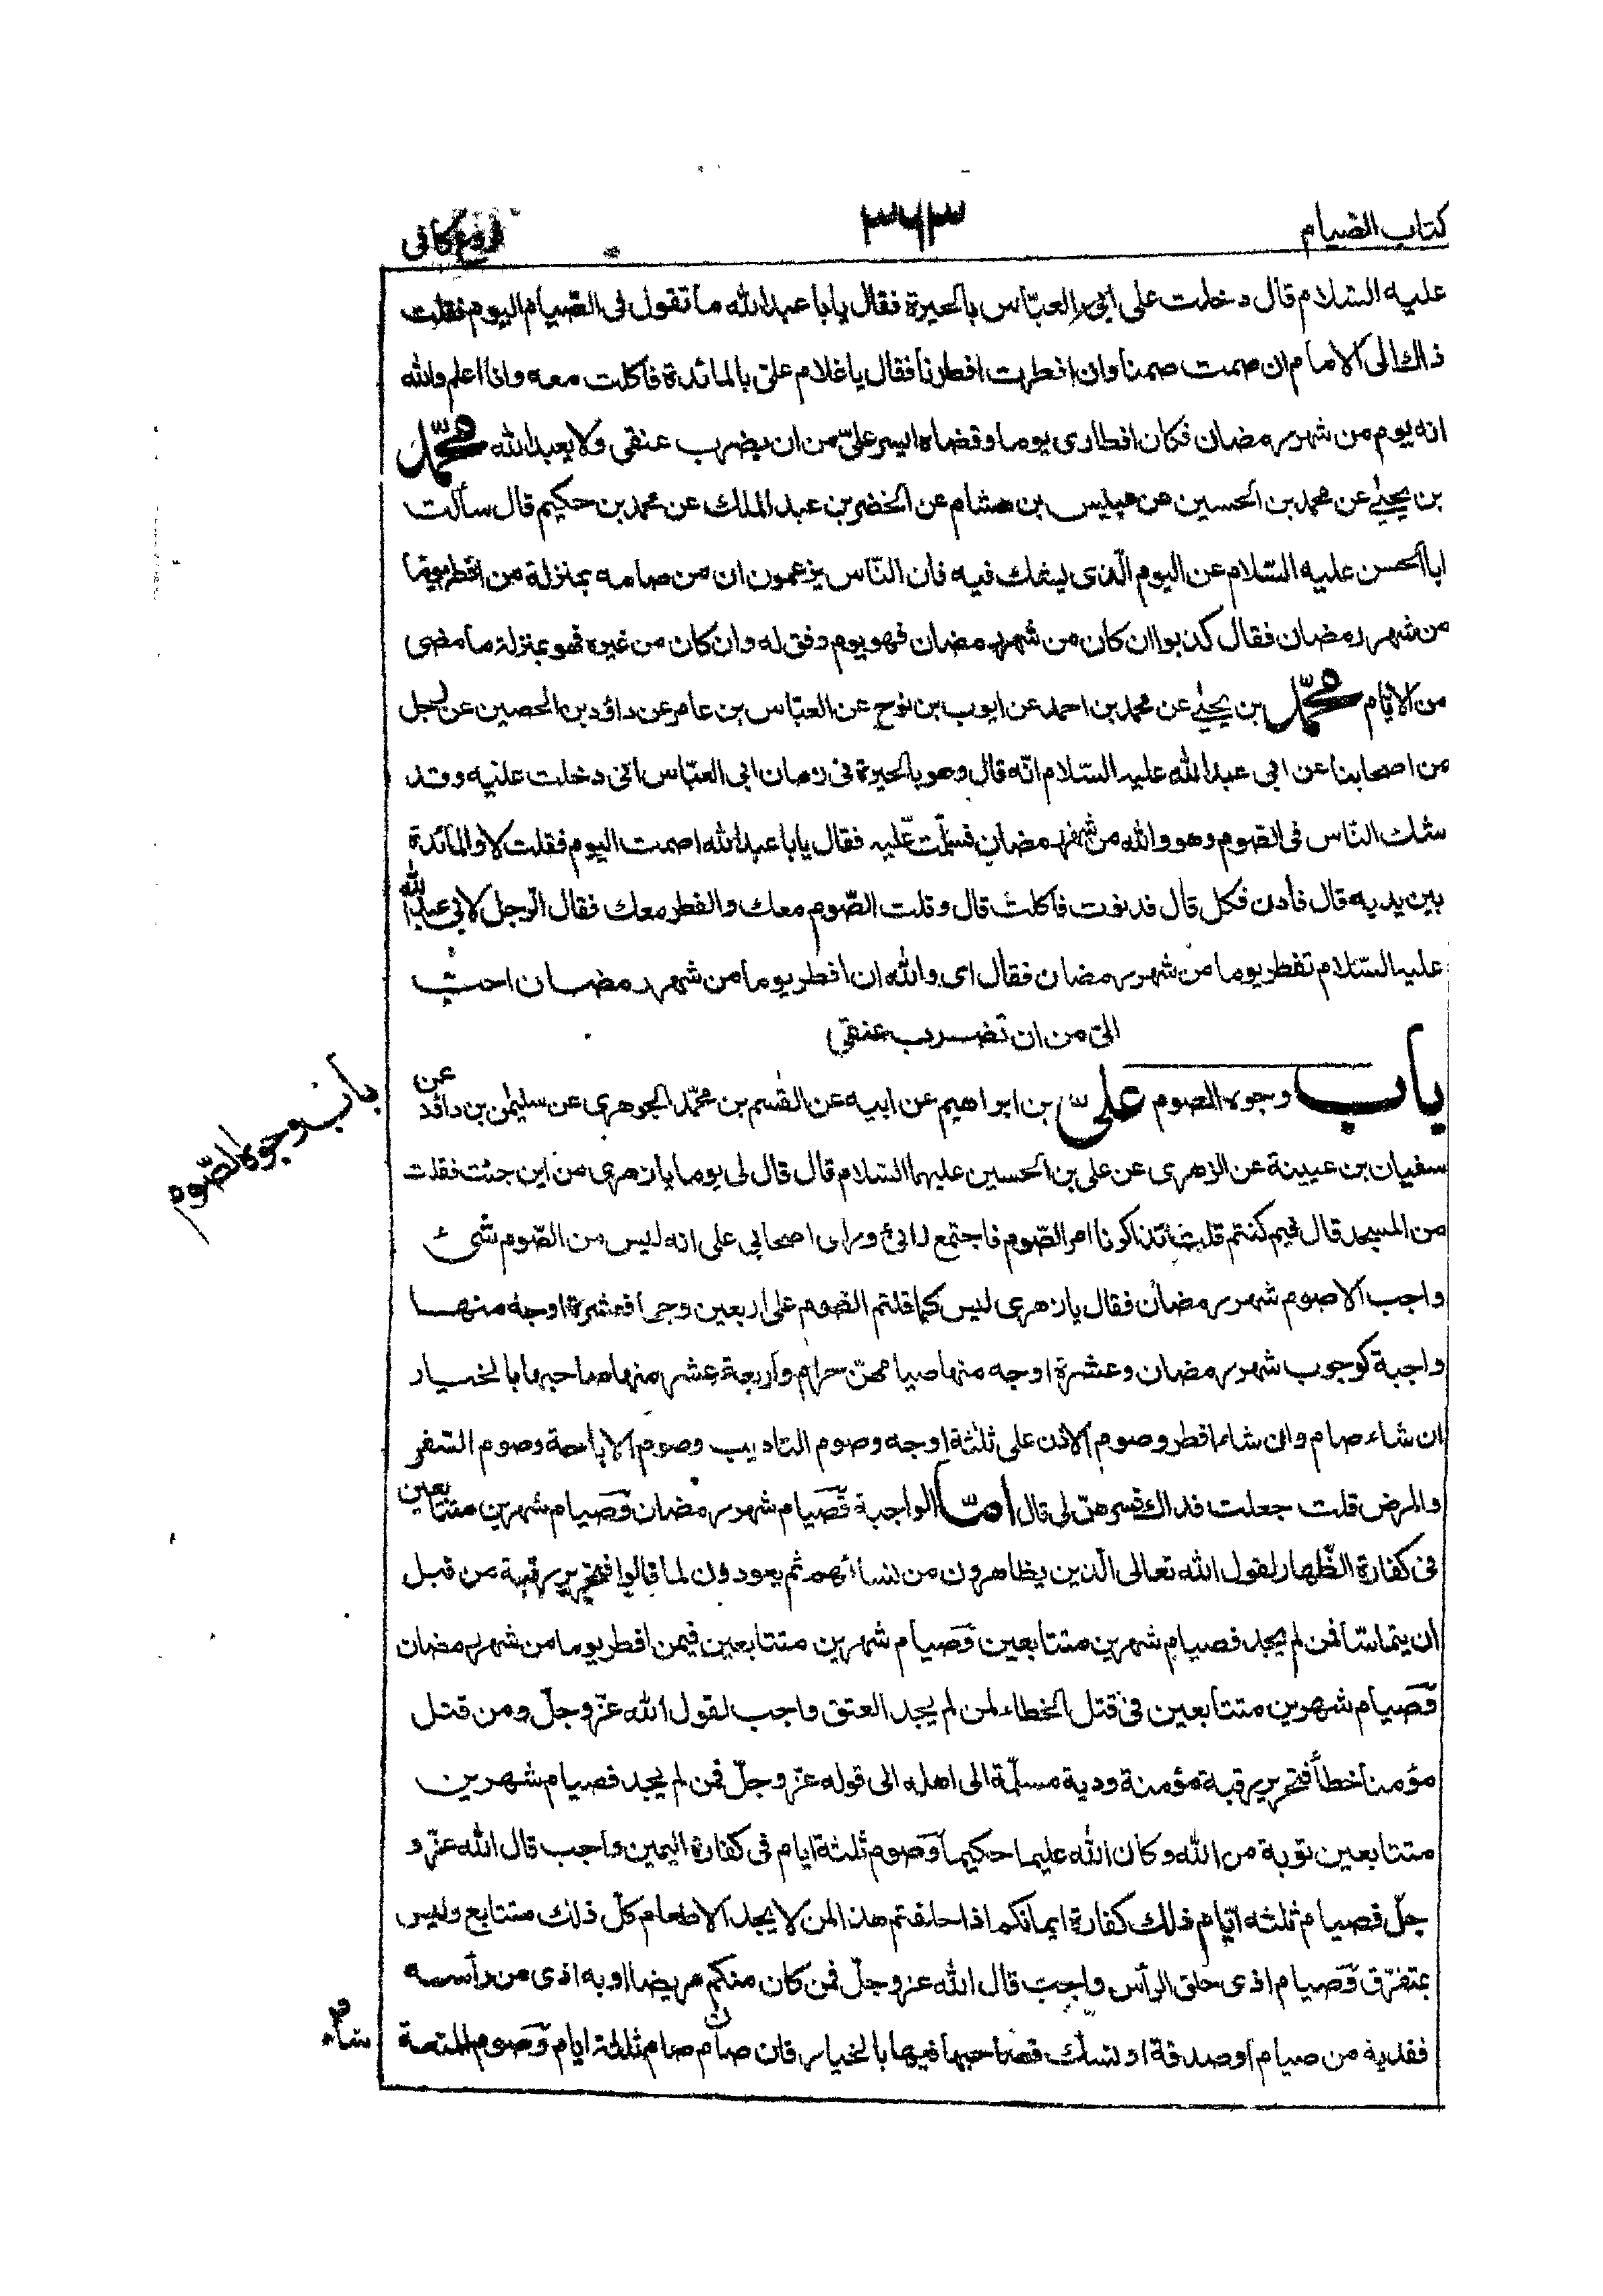 كتاب الصيام
٣٦٣
فروع كافى
عليه السلام قال دخلت على ابى العبّاس بالحيرة فقال يابا عبدالله ما تقول فى الصّيام اليوم فقلت
ذاك الى الامام ان صمت صمنا وان افطرت افطرنا فقال ياغلام علىّ بالمائدة فاكلت معه وانا اعلم والله
انه يوم من شهر رمضان فكان افطارى يوما وقضاه ايسر علىّ من ان يضرب عنقى ولا يعبد الله محمّد
بن يحيٰى عن محمد بن الحسين عن بن هشام عن الخضر بن عبد الملك عن محمد بن حكيم قال سألت
ابا الحسن عليه السّلام عن اليوم الّذى يشك فيه فان النّاس يزعمون ان من صامه بمنزلة من افطر يوما
من شهر رمضان فقال كذبوا ان كان من شهر رمضان فهو يوم وفق له وان كان من غيره فهو بمنزلة ما مضى
من الايّام محمّد بن يحيٰى عن محمد بن احمد عن ايوب بن نوح عن العبّاس بن عامر عن داؤد بن الحصين عن رجل
من اصحابنا عن ابى عبد الله عليه السّلام انّه قال وهو بالحيرة فى زمان ابى العبّاس انى دخلت عليه وقد
شك النّاس فى الصّوم وهو والله من شهر رمضان فسلّمت عليه فقال يابا عبدالله اصمت اليوم فقلت لا والمائدة
بين يديه قال فأدن فكل قال فدنوت فاكلت قال وقلت الصّوم معك والفطر معك فقال الرّجل لابى عبدالله
عليه السّلام تفطر يوما من شهر رمضان فقال اى والله ان افطر يوما من شهر رمضان احبّ
الىّ من ان تضرب عنقى
باب وجوه الصوم علىّ بن ابراهيم عن ابيه عن القٰسم بن محمّد الجوهرى عن سليمٰن بن داؤد عن
باب وجوه الصّوم
سفيان بن عيينة عن الزهرى عن على بن الحسين عليهما السّلام قال قال لى يوما يا زهرى من اين جئت فقلت
من المسجد قال فيم كنتم قلت تذاكرنا امر الصّوم فاجتمع رائى وراى اصحابى على انه ليس من الصّوم شئ
واجب الا صوم شهر رمضان فقال يا زهرى ليس كما قلتم الصّوم على اربعين وجها فعشرة اوجه منها
واجبة كوجوب شهر رمضان وعشرة اوجه منها صيامهنّ حرام واربعة عشر منها صاحبها بالخيار
ان شاء صام وان شاء افطر وصوم الاذن على ثلثة اوجه وصوم التاديب وصوم الاباحة وصوم السّفر
والمرض قلت جعلت فداك فسرهنّ لى قال امّا الواجبة فصيام شهر رمضان وصيام شهرين متتابعين
فى كفارة الظّهار لقول الله تعالى الّذين يظاهرون من نسائهم ثم يعودون لما قالوا فتحرير رقبة من قبل
أن يتماسّا فمن لم يجد فصيام شهرين متتابعين وصيام شهرين متتابعين فيمن افطر يوما من شهر رمضان
وصيام شهرين متتابعين فى قتل الخطاء لمن لم يجد العتق واجب لقول الله عزّ وجلّ ومن قتل
مؤمنا خطأ فتحرير رقبة مؤمنة ودية مسلّمة الى اهله الى قوله عزّ وجلّ فمن لم يجد فصيام شهرين
متتابعين توبة من الله وكان الله عليما حكيما وصوم ثلثة ايام فى كفارة اليمين واجب قال الله عزّ و
جلّ فصيام ثلثه ايّام ذلك كفارة ايمانكم اذا حلفتم هذا لمن لا يجد الاطعام كلّ ذلك متتابع وليس
بمتفرّق وصيام اذى حلق الرأس واجب قال الله عز وجلّ فمن كان منكم مريضا او به اذى من رأسه
ففدية من صيام او صدقة او نسك فصاحبها فيها بالخيار فان صام صام ثلثة ايام وصوم المتعة